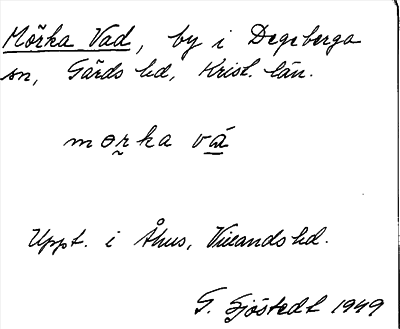 Mörka Vad, by i Degeberga
sn, Gärds hd, Krist. län.
morka vá
Uppt. i Åhus, Villands hd.
G. Sjöstedt 1949